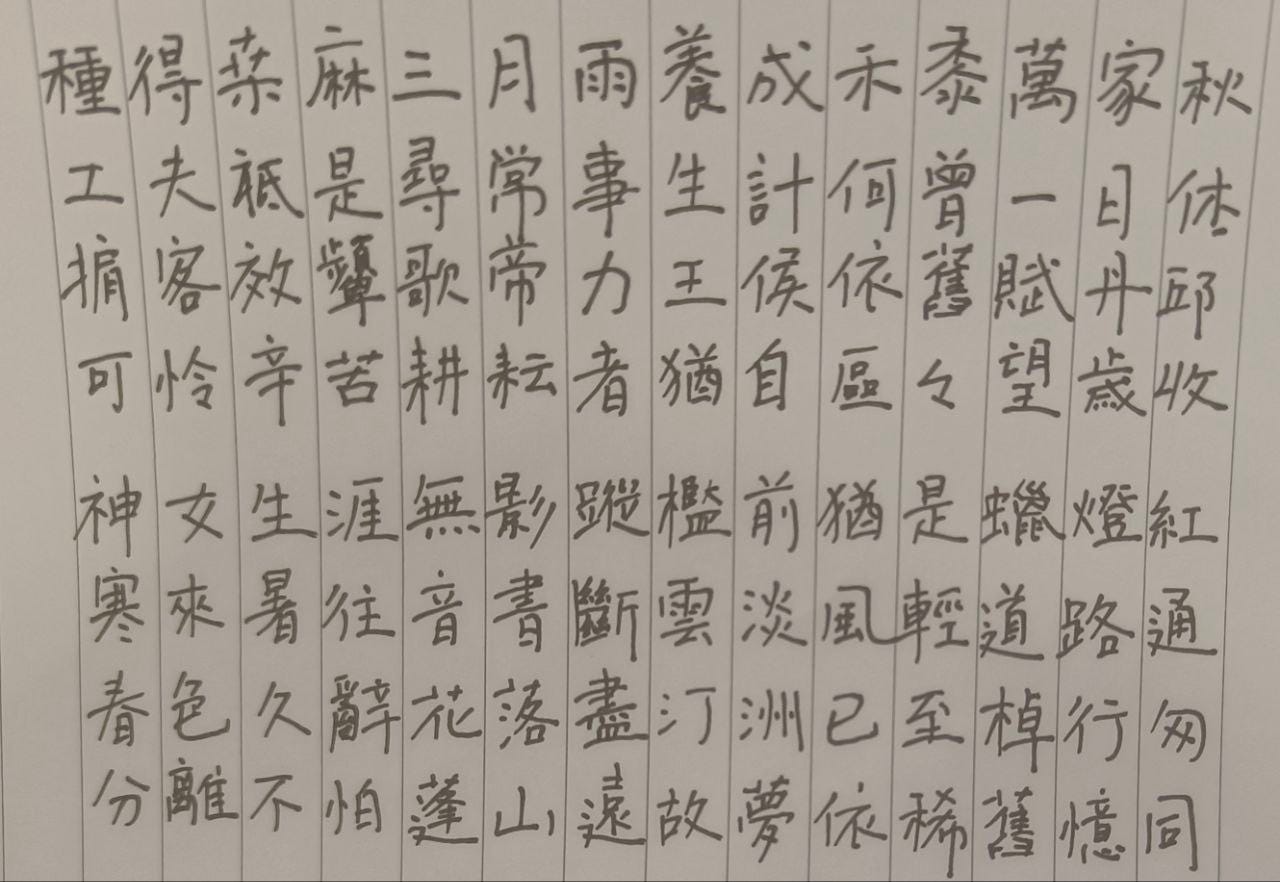 種得菜麻三月雨養成禾黍萬家秋
工夫祗是尋常事生計何曾一日休
掮客效顰歌帝力王侯依舊賦丹邱
可憐辛苦耕耘者猶自區々望歲收
神女生涯無影蹤檻前猶是蠟燈紅
寒來暑往音書斷雲淡風輕道路通
春色久辭花落盡汀洲已至棹行匆
分離不怕蓬山遠故夢依稀舊憶同